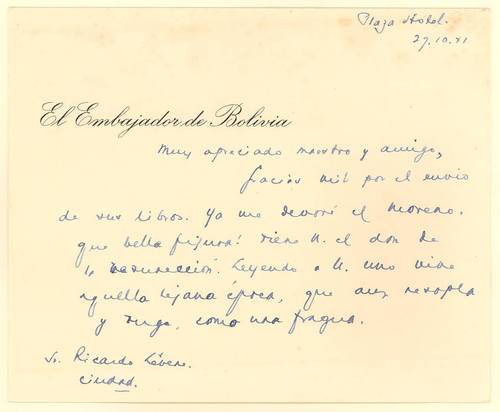 Plaza Hotel.
27.10.41
El Embajador de Bolivia
Muy apreciado maestro y amigo,
gracias mil por el envio
de sus libros. Ya me devoré el Moreno.
que bella figura! Tiene U. el don de
la resurrección. Leyendo a U. uno vive
aquella lejana época, que aun resopla
y ruge, como una fragua.
Sr. Ricardo Levene.
Ciudad.